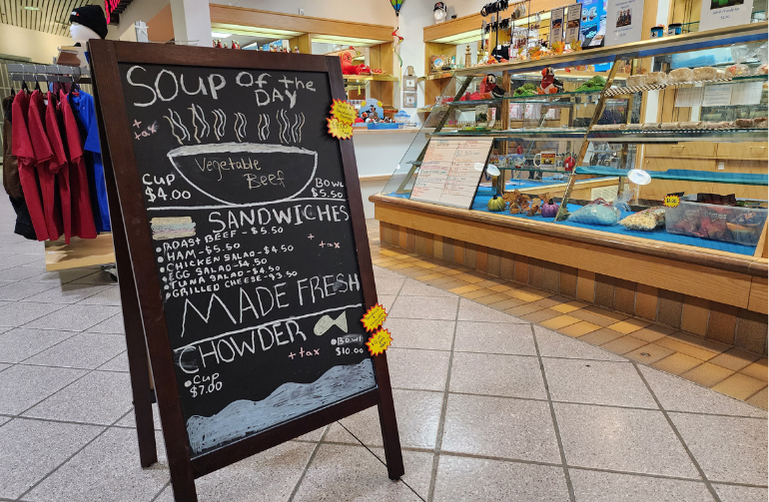 SOUP OF the
DAY
+ tax
Vegetable
Beef
CUP
$4.00
BOWL
$5.50
SANDWICHES
•ROAST BEEF - $5.50
•HAM - $5.50
•CHICKEN SALAD - $4.50
•EGG SALAD - $4.50
•TUNA SALAD - $4.50
•GRILLED CHEESE - $3.50
+ tax
MADE FRESH
CHOWDER
+ tax
•CUP
$7.00
•BOWL
$10.00